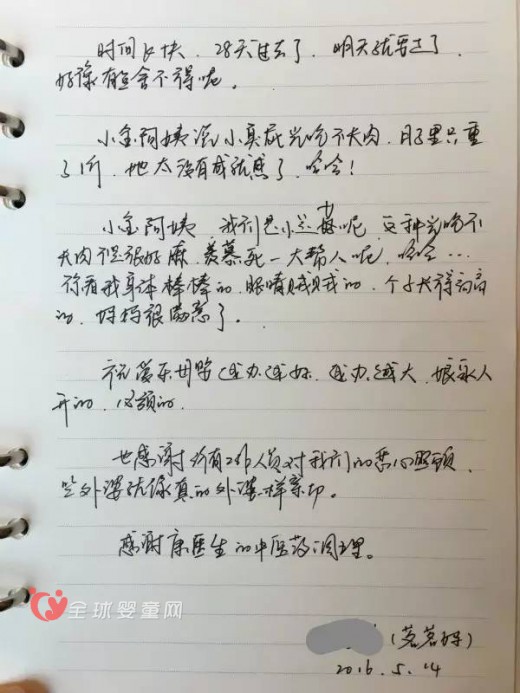 时间飞快，28天过去了，明天就要走了，
好像有点舍不得呢。
小金阿姨说小真屁光吃不长肉，月子里只重
了1斤，她太没有成就感了，哈哈！
小金阿姨，我们是小巧女呢，这种光吃不
长肉不是很好嘛，羡慕死一大帮人呢，哈哈…
你看我身体棒棒的，眼睛贼贼的，个子长得高高
的，妈妈很满意了。
祝爱乐母婴越办越好，越办越大，
开的，必须的。
也感谢所有工作人员对我们的悉心照顾，
外婆就像真的外婆一样亲切。
感谢康医生的中医药调理。
(茗茗妈)
2016.5.14
全球婴童网